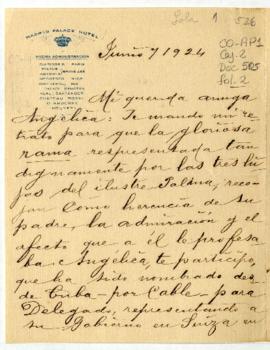 MADRID PALACE HOTEL
Sola 1 526
CO-AP1
Cj. 2
Doc 505
fol. 2
Junio 7 1924
Mi querida amiga
Angélica: Te mando un re-
trato para que la gloriosa
rama representada tan
dignamente por las tres hi-
jas del ilustre Palma, reco-
jan como herencia de su
padre, la admiración y el
afecto que a él le profesa-
ba: Angelica, te participo,
que ha sido nombrado des-
de Cuba - por Cable - para
Delegado, representando a
su Gobierno en Suiza en